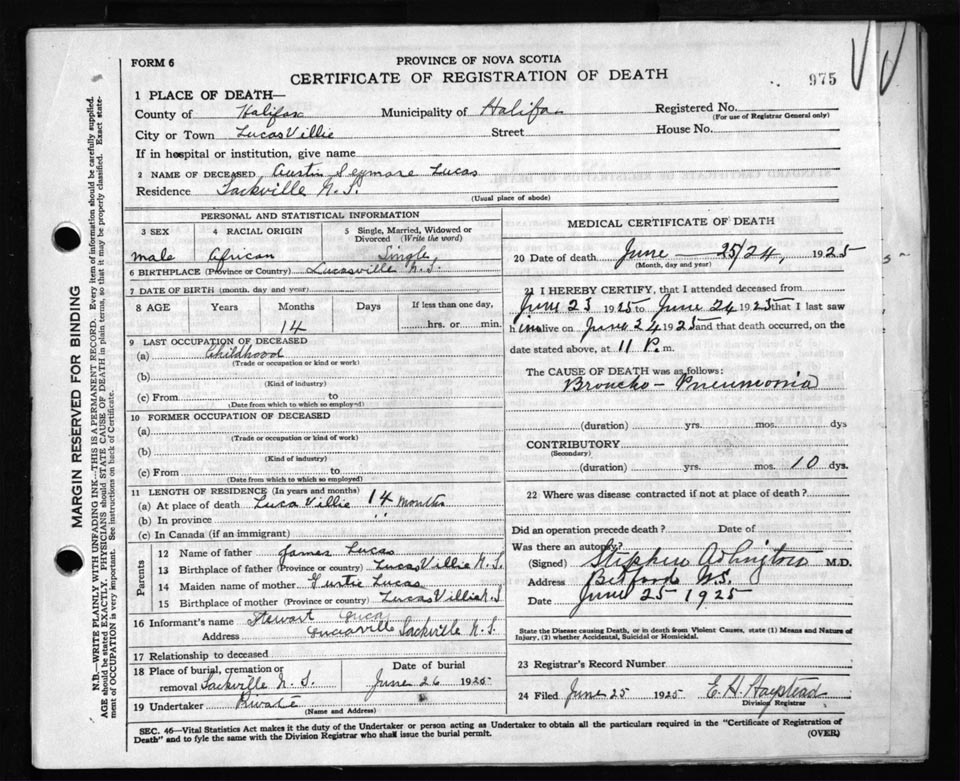 FORM 6
PROVINCE OF NOVA SCOTIA
CERTIFICATE OF REGISTRATION OF DEATH
975
1 PLACE OF DEATH—
County of Halifax Municipality of Halifax Registered No.
(For use of Registrar General only)
City or Town LucasVillie Street House No.
If in hospital or institution, give name
2 NAME OF DECEASED Austin Seymore Lucas
Residence Sackville N.S.
(Usual place of abode)
PERSONAL AND STATISTICAL INFORMATION
3 SEX 4 RACIAL ORIGIN 5 Single, Married, Widowed or Divorced (Write the word)
male African Single
6 BIRTHPLACE (Province or Country) Lucasville N.S.
7 DATE OF BIRTH (month, day and year)
8 AGE Years Months Days If less than one day,
14 hrs. or min.
9 LAST OCCUPATION OF DECEASED
(a) Childhood
(Trade or occupation or kind of work)
(b)
(Kind of industry)
(c) From to
(Date from which to which so employed)
10 FORMER OCCUPATION OF DECEASED
(a)
(Trade or occupation or kind of work)
(b)
(Kind of industry)
(c) From to
(Date from which to which so employed)
11 LENGTH OF RESIDENCE (In years and months)
(a) At place of death Luca Villie 14 months
(b) In province " "
(c) In Canada (if an immigrant)
Parents
12 Name of father James Lucas
13 Birthplace of father (Province or country) LucasVillie N.S.
14 Maiden name of mother Gurtie Lucas
15 Birthplace of mother (Province or country) LucasVillie N.S
16 Informant's name Stewart
Address Sackville N.S.
17 Relationship to deceased
18 Place of burial, cremation or Date of burial
removal Sackville N.S. June 26 1925
19 Undertaker Private
(Name and Address)
MEDICAL CERTIFICATE OF DEATH
20 Date of death June 25/24, 1925
(Month, day and year)
21 I HEREBY CERTIFY, that I attended deceased from
June 23 1925 to June 24 1925 that I last saw
him alive on June 24 1925 and that death occurred, on the
date stated above, at 11 P. m.
The CAUSE OF DEATH was as follows:
Broncho-Pneumonia
(duration) yrs. mos. dys
CONTRIBUTORY
(Secondary)
(duration) yrs. mos. 10 dys.
22 Where was disease contracted if not at place of death?
Did an operation precede death? Date of
Was there an autopsy?
(Signed) Stephen M.D.
Address Bedford N.S.
Date June 25 1925
State the Disease causing Death, or in death from Violent Causes, state (1) Means and Nature of
Injury, (2) whether Accidental, Suicidal or Homicidal.
23 Registrar's Record Number
24 Filed June 25 1925 E. H.
Division Registrar
SEC. 46—Vital Statistics Act makes it the duty of the Undertaker or person acting as Undertaker to obtain all the particulars required in the "Certificate of Registration of
Death" and to fyle the same with the Division Registrar who shall issue the burial permit.
(OVER)
MARGIN RESERVED FOR BINDING
N.B.—WRITE PLAINLY WITH UNFADING INK—THIS IS A PERMANENT RECORD. Every item of information should be carefully supplied.
AGE should be stated EXACTLY. PHYSICIANS should STATE CAUSE OF DEATH in plain terms, so that it may be properly classified. Exact state-
ment of OCCUPATION is very important. See instructions on back of Certificate.